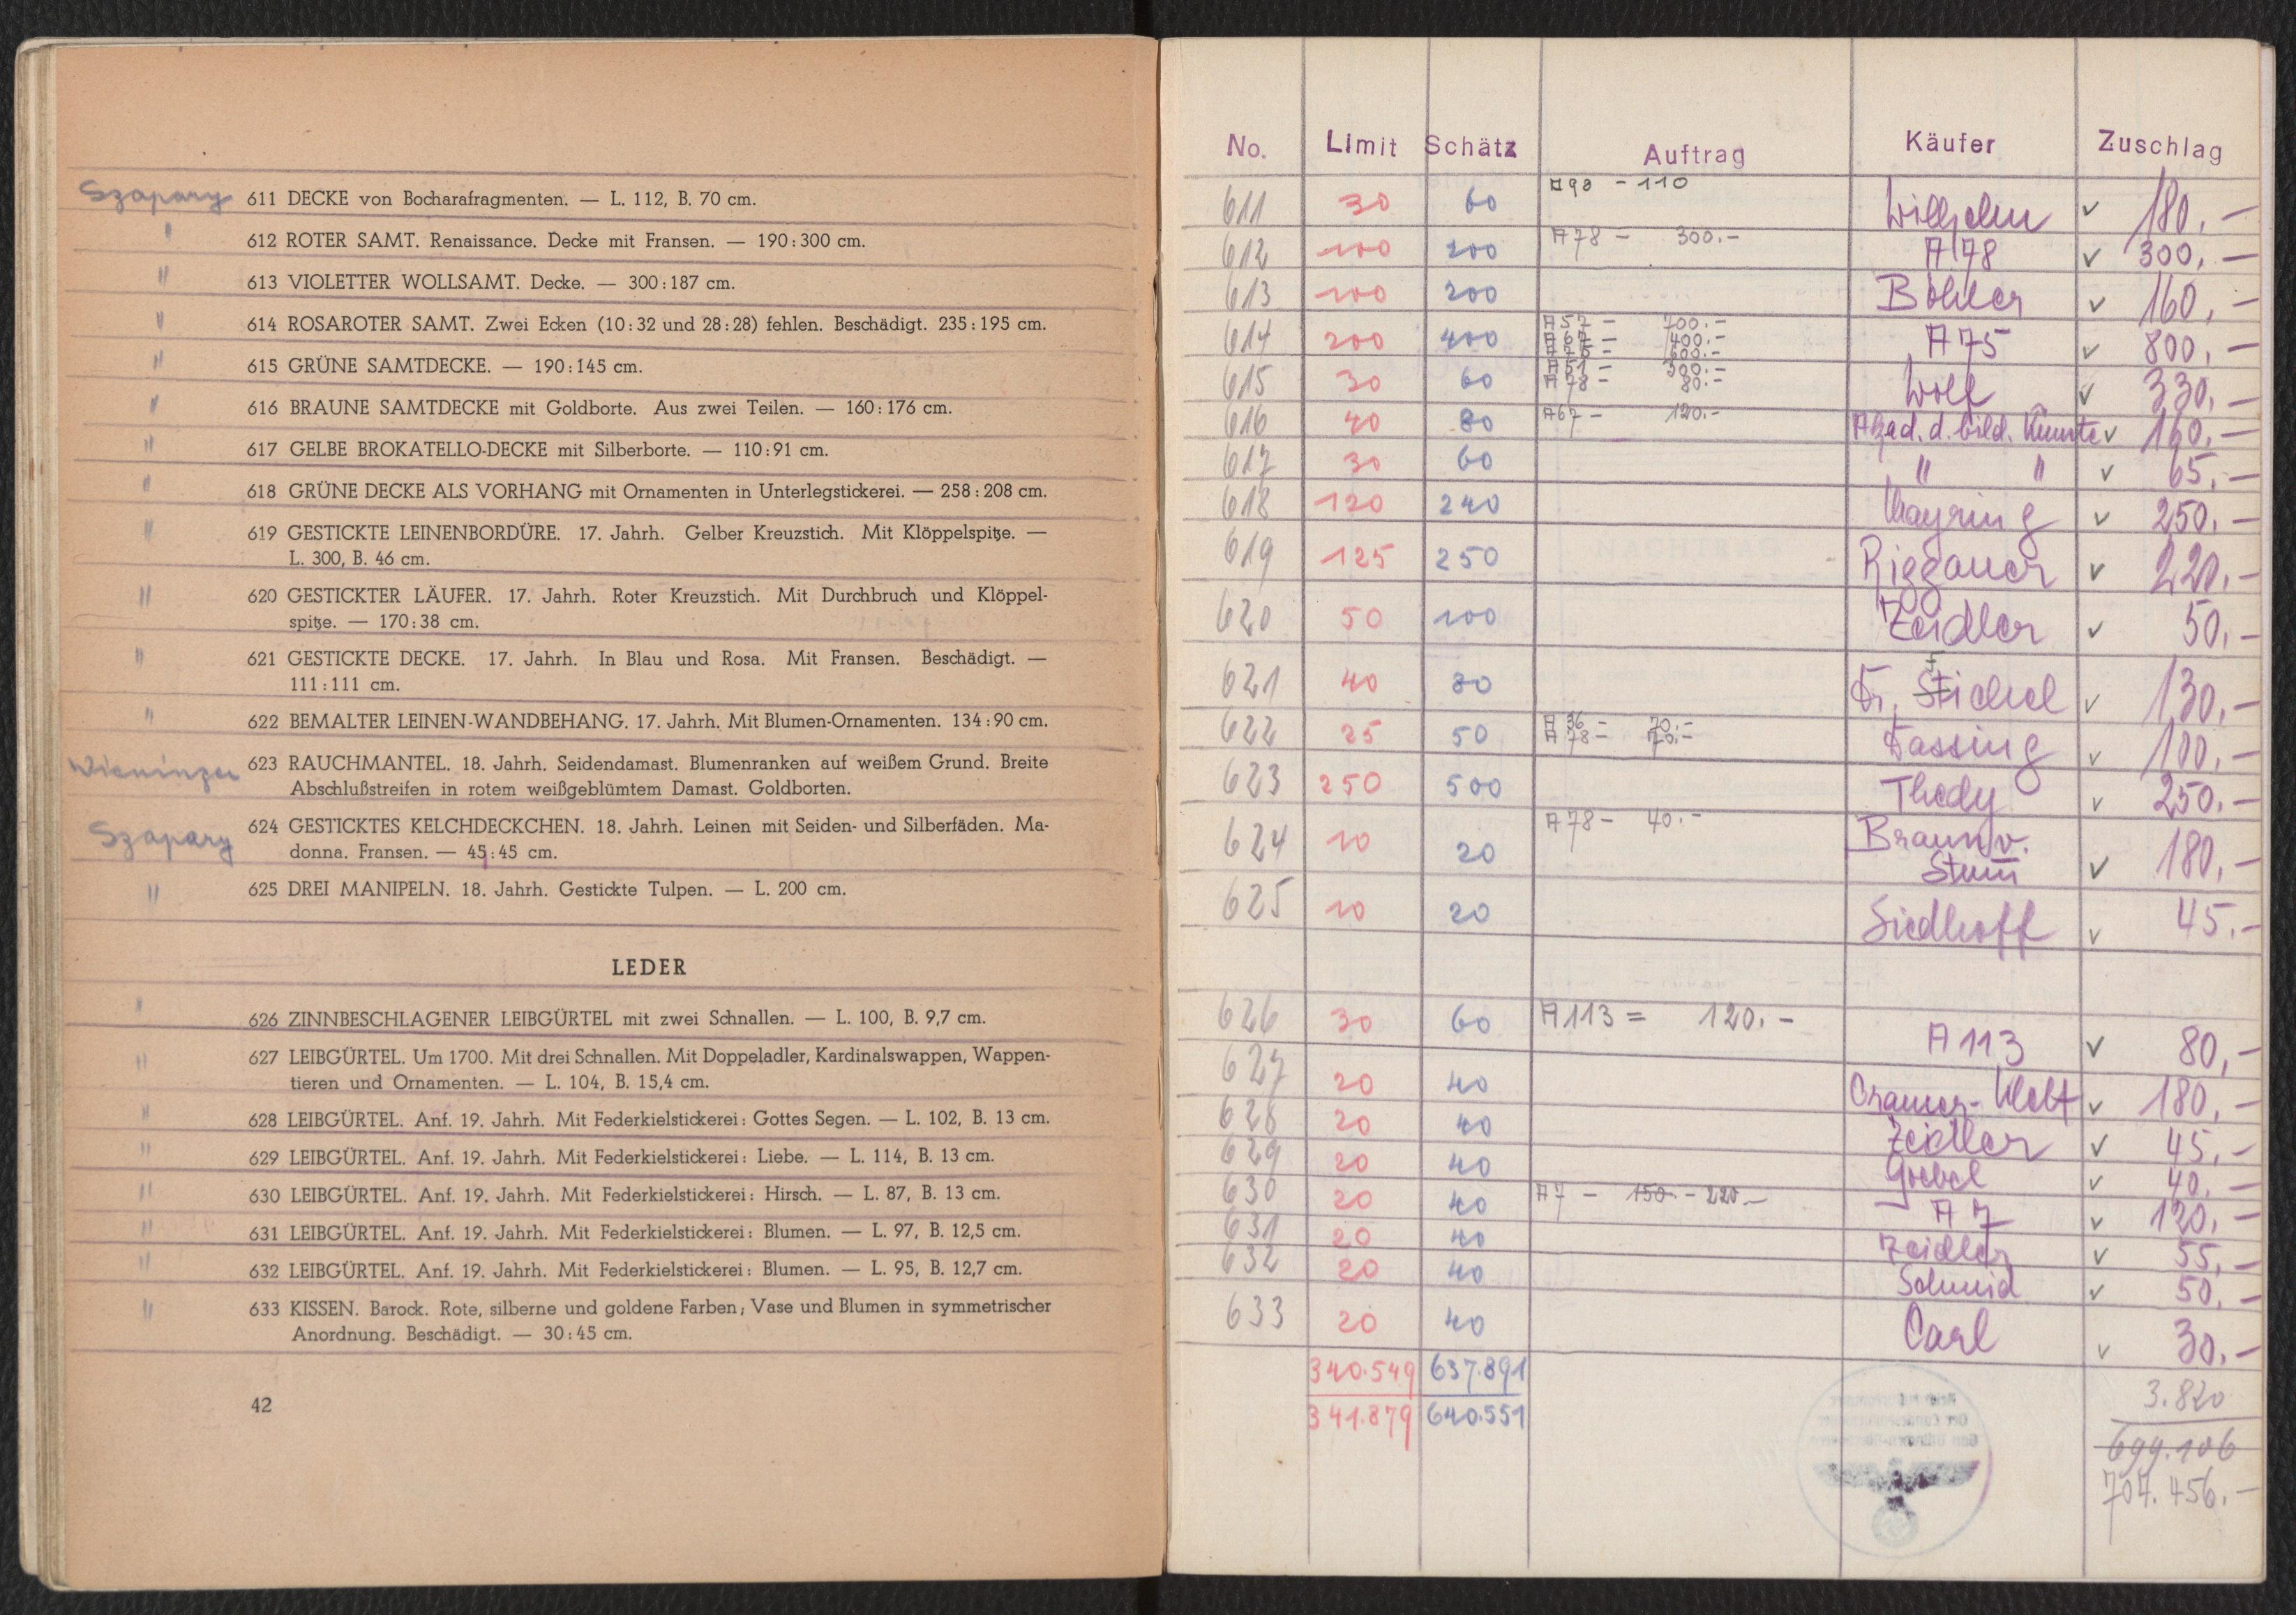 Szapary 611 DECKE von Bocharafragmenten. — L. 112, B. 70 cm.
" 612 ROTER SAMT. Renaissance. Decke mit Fransen. — 190:300 cm.
" 613 VIOLETTER WOLLSAMT. Decke. — 300:187 cm.
" 614 ROSAROTER SAMT. Zwei Ecken (10:32 und 28:28) fehlen. Beschädigt. 235:195 cm.
" 615 GRÜNE SAMTDECKE. — 190:145 cm.
" 616 BRAUNE SAMTDECKE mit Goldborte. Aus zwei Teilen. — 160:176 cm.
" 617 GELBE BROKATELLO-DECKE mit Silberborte. — 110:91 cm.
" 618 GRÜNE DECKE ALS VORHANG mit Ornamenten in Unterlegstickerei. — 258:208 cm.
" 619 GESTICKTE LEINENBORDÜRE. 17. Jahrh. Gelber Kreuzstich. Mit Klöppelspitze. —
L. 300, B. 46 cm.
" 620 GESTICKTER LÄUFER. 17. Jahrh. Roter Kreuzstich. Mit Durchbruch und Klöppel-
spitze. — 170:38 cm.
" 621 GESTICKTE DECKE. 17. Jahrh. In Blau und Rosa. Mit Fransen. Beschädigt. —
111:111 cm.
" 622 BEMALTER LEINEN-WANDBEHANG. 17. Jahrh. Mit Blumen-Ornamenten. 134:90 cm.
Wieninger 623 RAUCHMANTEL. 18. Jahrh. Seidendamast. Blumenranken auf weißem Grund. Breite
Abschlußstreifen in rotem weißgeblümtem Damast. Goldborten.
Szapary 624 GESTICKTES KELCHDECKCHEN. 18. Jahrh. Leinen mit Seiden- und Silberfäden. Ma-
donna. Fransen. — 45:45 cm.
" 625 DREI MANIPELN. 18. Jahrh. Gestickte Tulpen. — L. 200 cm.
LEDER
" 626 ZINNBESCHLAGENER LEIBGÜRTEL mit zwei Schnallen. — L. 100, B. 9,7 cm.
" 627 LEIBGÜRTEL. Um 1700. Mit drei Schnallen. Mit Doppeladler, Kardinalswappen, Wappen-
tieren und Ornamenten. — L. 104, B. 15,4 cm.
" 628 LEIBGÜRTEL. Anf. 19. Jahrh. Mit Federkielstickerei: Gottes Segen. — L. 102, B. 13 cm.
" 629 LEIBGÜRTEL. Anf. 19. Jahrh. Mit Federkielstickerei: Liebe. — L. 114, B. 13 cm.
" 630 LEIBGÜRTEL. Anf. 19. Jahrh. Mit Federkielstickerei: Hirsch. — L. 87, B. 13 cm.
" 631 LEIBGÜRTEL. Anf. 19. Jahrh. Mit Federkielstickerei: Blumen. — L. 97, B. 12,5 cm.
" 632 LEIBGÜRTEL. Anf. 19. Jahrh. Mit Federkielstickerei: Blumen. — L. 95, B. 12,7 cm.
" 633 KISSEN. Barock. Rote, silberne und goldene Farben; Vase und Blumen in symmetrischer
Anordnung. Beschädigt. — 30:45 cm.
42
No. Limit Schätz Auftrag Käufer Zuschlag
611 30 60 A98 - 110 Wilhelm v 180.—
612 100 200 A78 - 300.- A78 v 300.—
613 100 200 Böhler v 160.—
614 200 400 A57 - 700.- A67 - 400.- A75 v 800.—
615 30 60 A51 - 300.- A78 - 80.- Wolf v 330.—
616 40 80 A67 - 120.- Akad. d. bild. Künste v 160.—
617 30 60 " " v 65.—
618 120 240 Mayring v 250.—
619 125 250 Riggauer v 220.—
620 50 100 Zeidler v 50.—
621 40 80 Fr. v 130.—
622 25 50 A 36 - 70.- A 78 - 70.- Fassing v 100.—
623 250 500 Thedy v 250.—
624 10 20 A78 - 40.- Braun v.
Stum v 180.—
625 10 20 Siedhoff v 45.—
626 30 60 A113 = 120.- A113 v 80.—
627 20 40 Cramer-Klett v 180.—
628 20 40 Zeidler v 45.—
629 20 40 Goebel v 40.—
630 20 40 A7 - 150.- 220.— A7 v 120.—
631 20 40 Zeidler v 55.—
632 20 40 Schmid v 50.—
633 20 40 Carl v 30.—
340.549 637.891 3.820
341.879 640.551 699.106
707.456.—